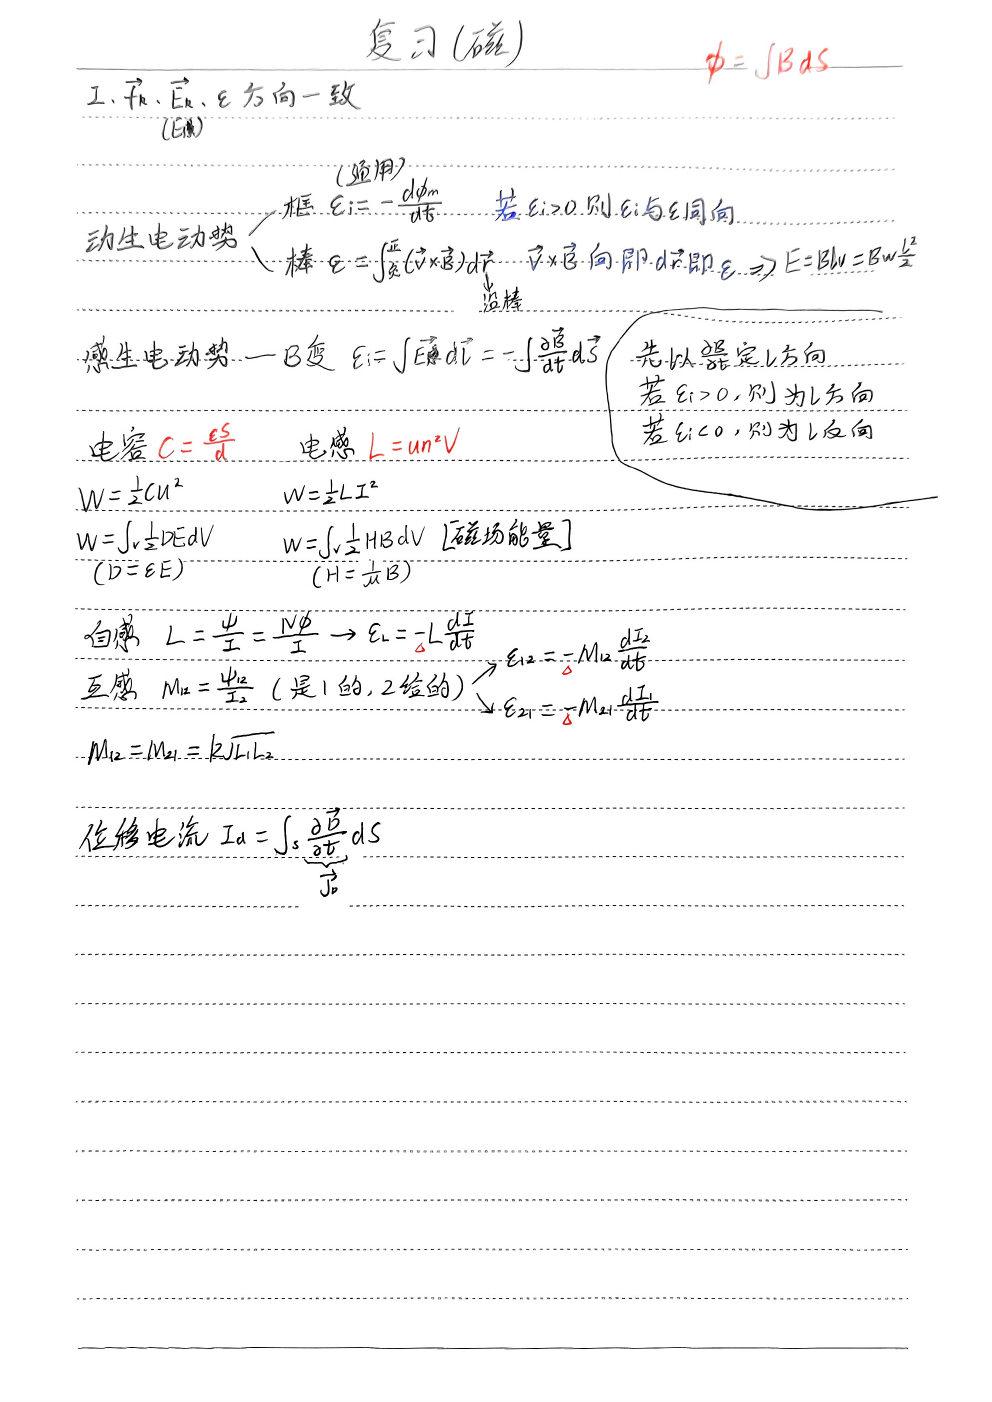 复习(磁)
φ = ∫B dS
I、f⃗k、E⃗k、ε 方向一致
(E感)
(通用)
框 εi = -dφm/dt 若 εi>0 则 εi 与 ε 同向
动生电动势
棒 ε = ∫(v⃗×B⃗)dr⃗ v⃗×B⃗ 向即 dr⃗ 即 ε ⇒ E=BLv=Bw L²/2
沿棒
感生电动势 — B变 εi = ∫E⃗感 dl⃗ = -∫∂B⃗/dt dS⃗
先以 ∂B/∂t 定 L 方向
若 εi>0, 则为 L 方向
若 εi<0, 则为 L 反向
电容 C = εS/d 电感 L = un²V
W = ½CU² W = ½LI²
W = ∫v ½DEdV W = ∫v ½HBdV [磁场能量]
(D=εE) (H=1/μ B)
自感 L = ψ/I = Nφ/I → εL = -L dI/dt
ε12 = -M12 dI2/dt
互感 M12 = ψ12/I2 (是1的,2给的)
ε21 = -M21 dI1/dt
M12 = M21 = k√L1L2
位移电流 Id = ∫s ∂D⃗/∂t dS
J⃗D